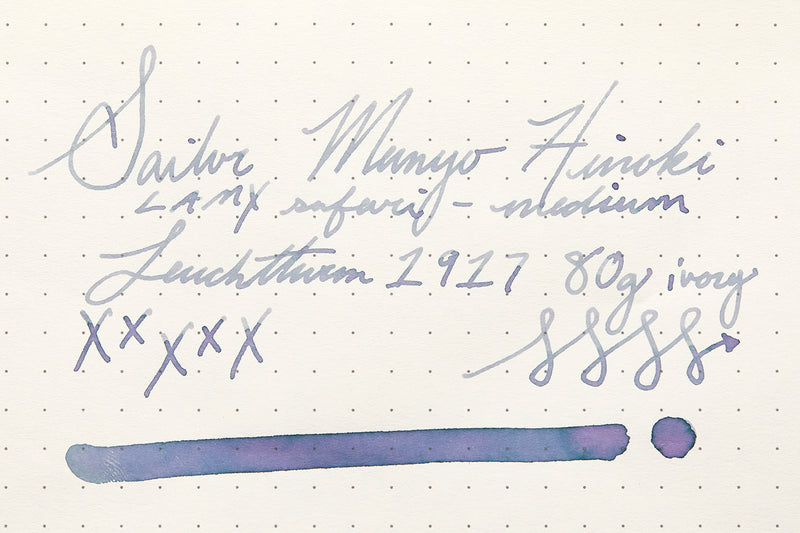 Sailor Manyo Hinoki
LAMY safari - medium
Leuchtturm 1917 80g ivory
X X X X X